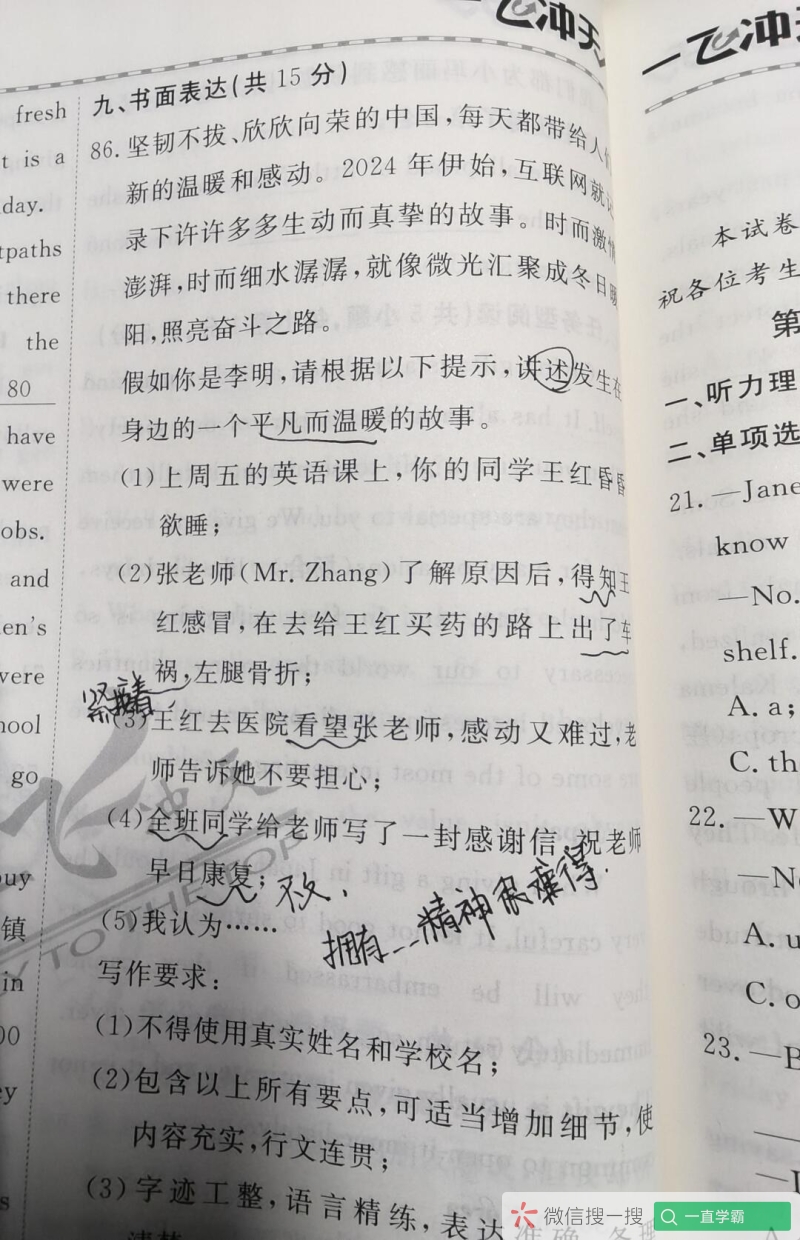 一飞冲天
一飞冲天
fresh
t is a
day.
tpaths
there
the
80
have
were
obs.
and
en's
vere
hool
go
buy
镇
in
00
ey
s
九、书面表达(共 15 分)
86. 坚韧不拔、欣欣向荣的中国,每天都带给人们
新的温暖和感动。2024 年伊始,互联网就记
录下许许多多生动而真挚的故事。时而激情
澎湃,时而细水潺潺,就像微光汇聚成冬日暖
阳,照亮奋斗之路。
假如你是李明,请根据以下提示,讲述发生在
身边的一个平凡而温暖的故事。
(1)上周五的英语课上,你的同学王红昏昏
欲睡;
(2)张老师(Mr. Zhang)了解原因后,得知王
红感冒,在去给王红买药的路上出了车
祸,左腿骨折;
紧接着
(3)王红去医院看望张老师,感动又难过,老
师告诉她不要担心;
(4)全班同学给老师写了一封感谢信,祝老师
早日康复;
(5)我认为……
拥有…精神很难得.
写作要求:
(1)不得使用真实姓名和学校名;
(2)包含以上所有要点,可适当增加细节,使
内容充实,行文连贯;
(3)字迹工整,语言精练,表达准确,各
飞冲天
TO THE TOP
本试卷
祝各位考生
第
一、听力理
二、单项选
21. —Jane
know
—No.
shelf.
A. a;
C. th
22. —W
—No
A. u
C. o
23. —B
—I
微信搜一搜
一直学霸